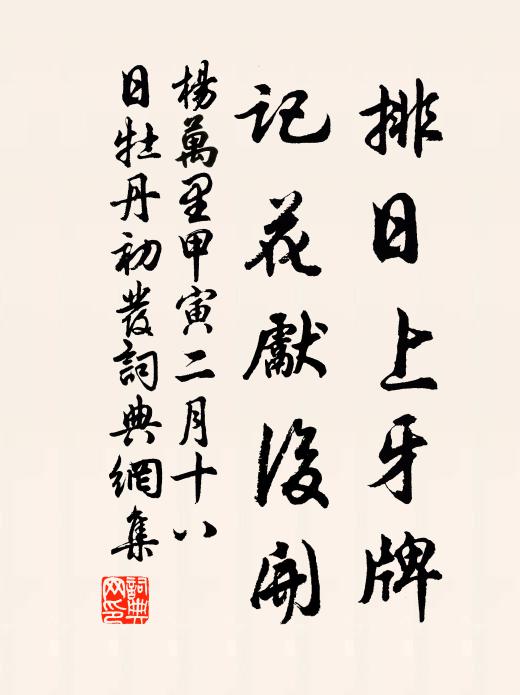 排日上牙牌
記花獻後開
楊萬里甲寅二月十八
日牡丹初發詞典網集
詞典網印